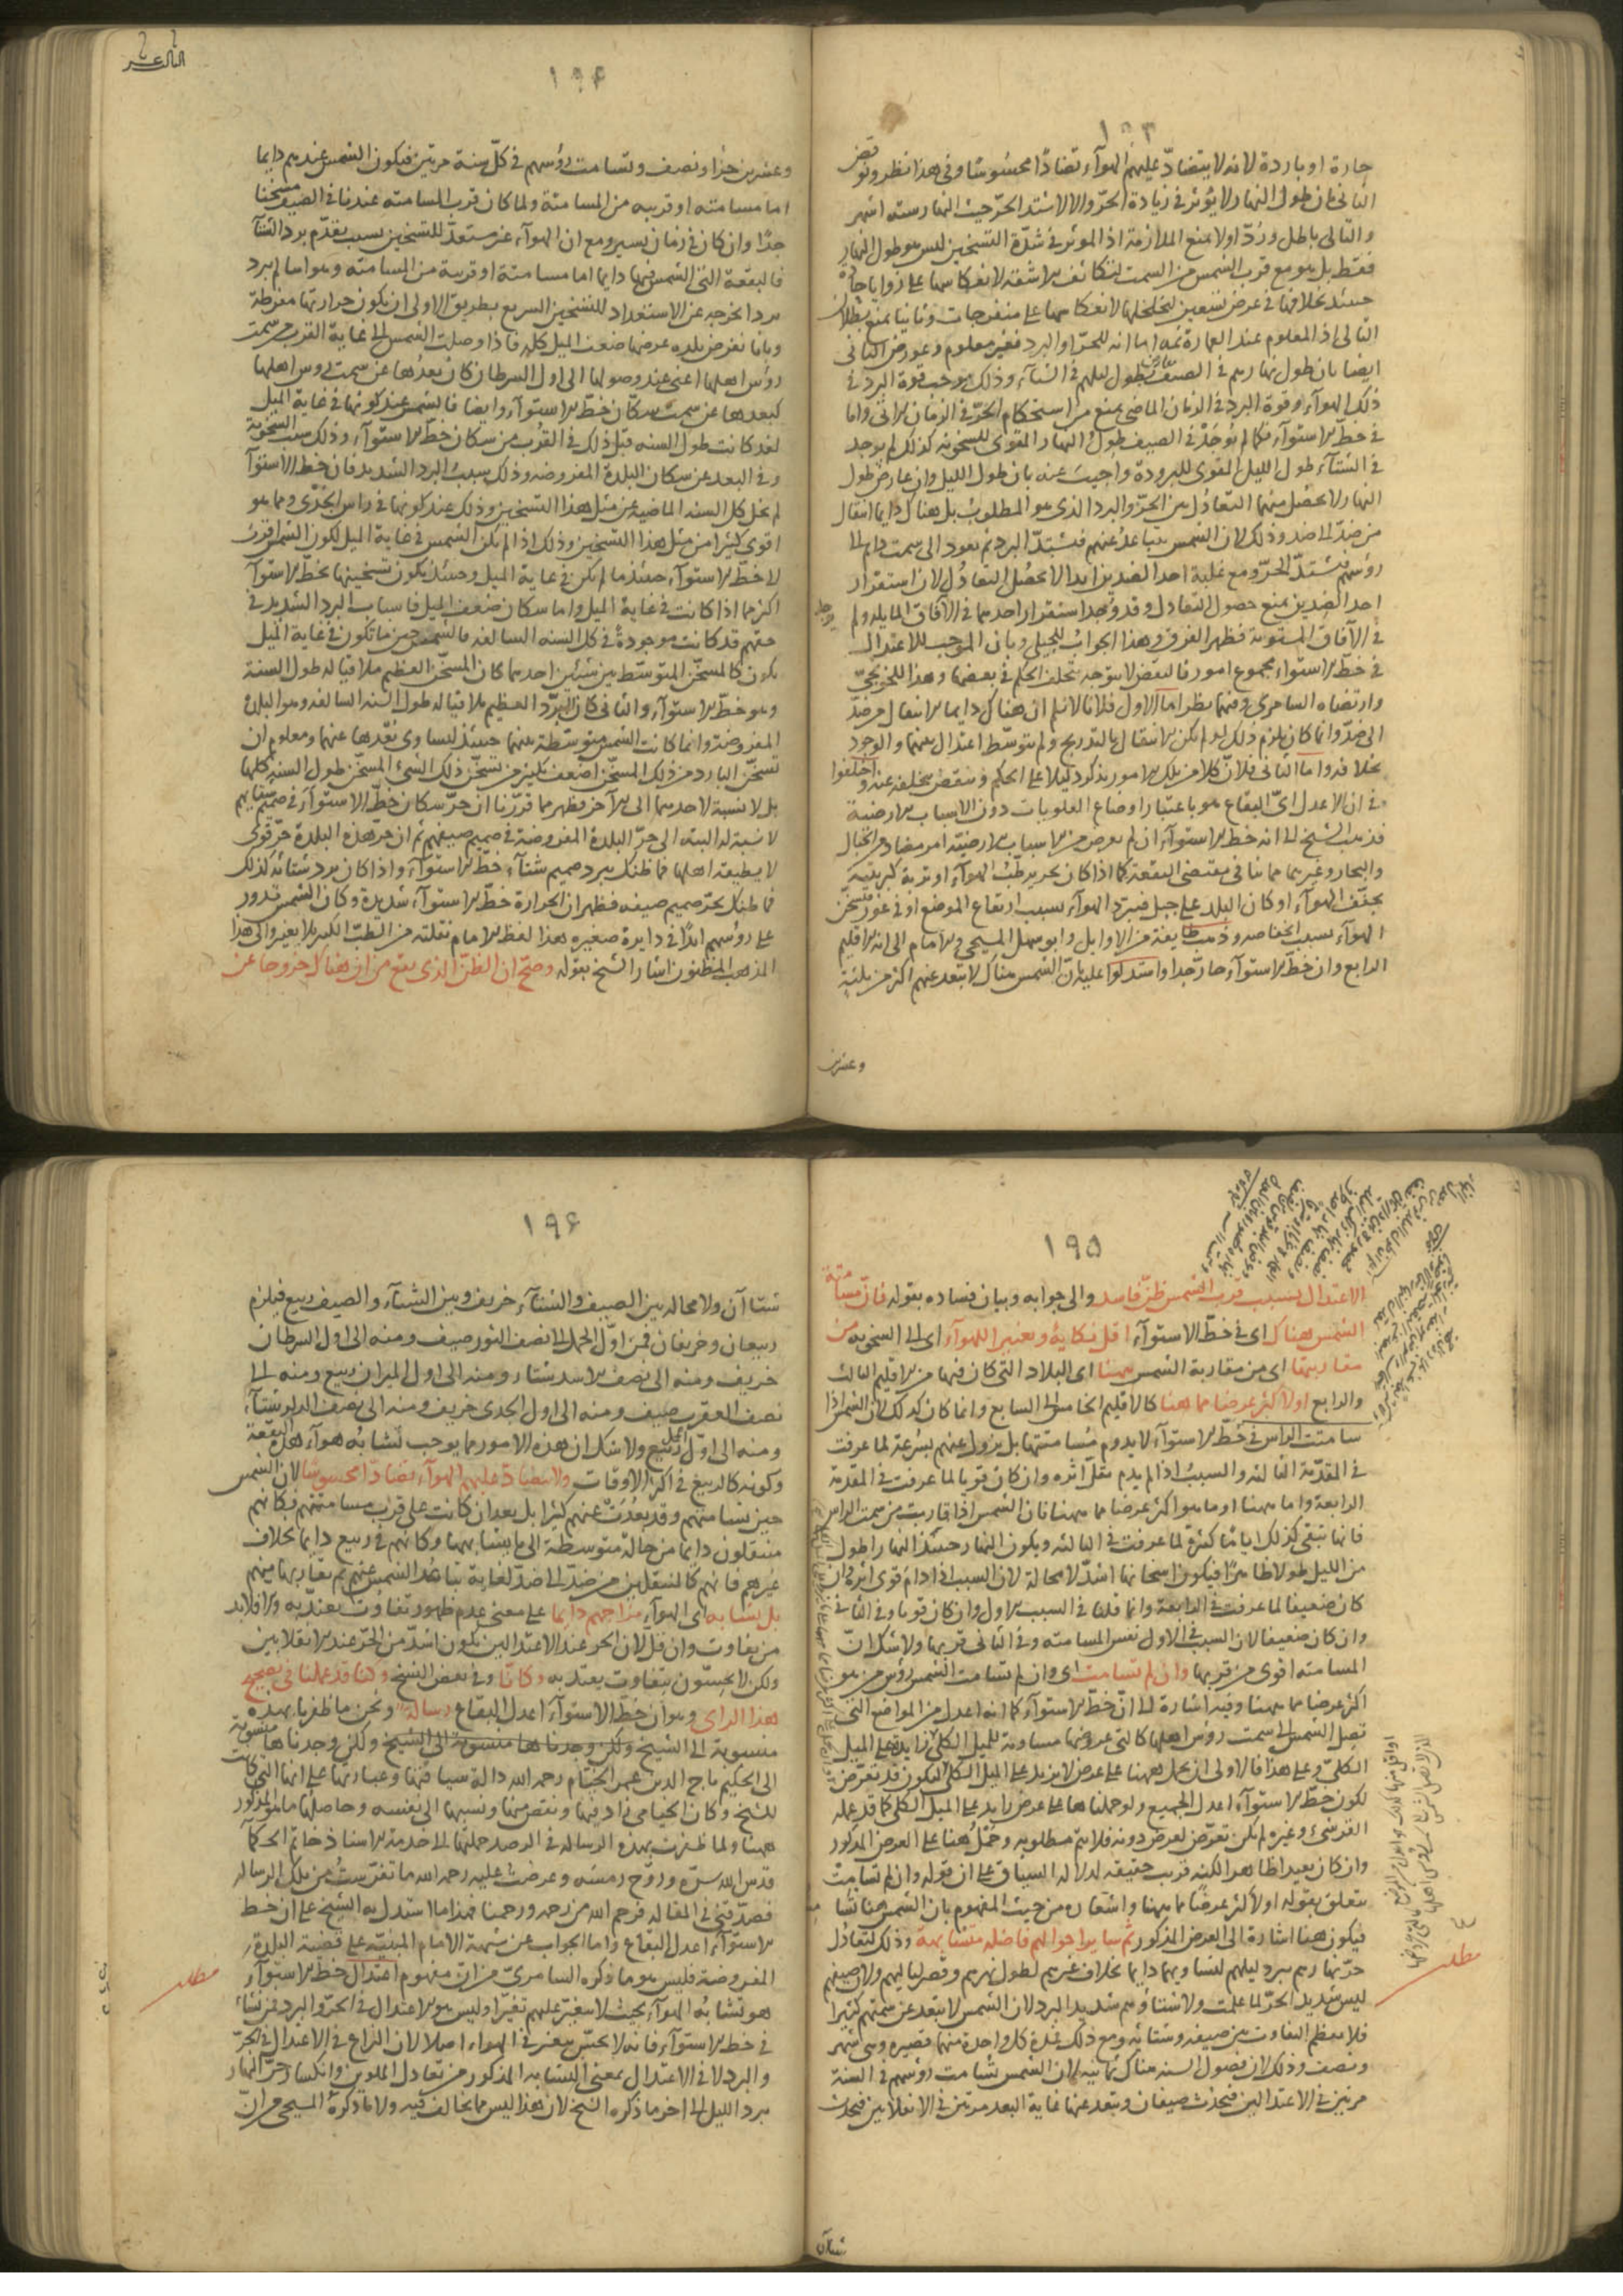 ١٩٣
حارة او باردة لانه لا يتضادّ عليهم الهوآء تضادًّا محسوسًا وفى هذا نظر ونوقض
الثانى بان طول النهار لا يؤثر فى زيادة الحرّ والا لاشتد الحرّ حيث النهار ستة اشهر
والتالى باطل ورُدّ اولا بمنع الملازمة اذ المؤثر فى شدّة التسخين ليس هو طول النهار
فقط بل هو مع قرب الشمس من السمت لتكاثف الاشعة لانعكاسها على زوايا حادّة
حينئذ بخلافها فى عرض تسعين لتخلخلها لانعكاسها على منفرجات وثانيا بمنع بطلان
التالى اذ المعلوم عند العمارة ثمه اما انه للحرّ او البرد فغير معلوم وعورض الثانى
ايضا بان طول نهارهم فى الصيف معارض بطول ليلهم فى الشتآء وذلك يوجب قوة البرد فى
ذلك الهوآء وقوة البرد فى الزمان الماضى يمنع من استحكام الحرّ فى الزمان الآتى واما
فى خطّ الاستوآء فكما لم يُوجَدْ فى الصيف طول النهار المقوى للسخونة كذلك لم يوجد
فى الشتآء طول الليل المقوى للبرودة واجيبَ عنه بان طول الليل وان عارض طول
النهار ولا يحصل منهما التعادُل بين الحرّ والبرد الذى هو المطلوب بل هناك دايما انتقال
من ضدّ الى ضد وذلك لان الشمس يتباعدُ عنهم فيشتدّ البرد ثم يعود الى سمت
رؤسهم فيشتدّ الحرّ ومع غلبة احد الضدين ابدا لا يحصُل التعادُل لان استقرار
احد الضدين يمنع حصول التعادل وقد وجد استقرار احدهما فى الآفاق المايلة ولم يوجد
فى الآفاق المستوية فظهر الفرق وهذا الجوابُ للجيلى وبان الموجب للاعتدال
فى خطّ الاستواء مجموع امور فالنقض لا يتوجه بتخلف الحكم فى بعضها وهذا للخونجىّ
وارتضاه السامرى وفيهما نظر اما الاول فلانا لا نسلم ان هناك دايما الانتقال من ضدّ
الى ضدّ وانما كان يلزم ذلك لو لم يكن الانتقال بالتدريج ولم يتوسّط اعتدال بينهما والوجود
بخلافه واما الثانى فلانّ كلا من تلك الامور يذكر دليلا على الحكم فينتقض بتخلفه عنه واختلفوا
فى ان الاعدل اىّ البقاع هو باعتبار اوضاع العلويات دون الاسباب الارضية
فذهب الشيخ الى انه خطّ الاستوآء ان لم يعرض من الاسباب الارضيّة امر مضاد من الجبال
والبحار وغيرهما مما ينافى مقتضى البقعة كما اذا كان بحر يرطّبُ الهوآء او تربة كبريتية
يجفّف الهوآء او كان البلد على جبل فيبرد الهوآء بسبب ارتفاع الموضع او فى غور فيتسخّن
الهوآء بسبب انخفاضه وذهب طايفة من الاوايل وابو سهل المسيحى والامام الى انه الاقليم
الرابع وان خطّ الاستوآء حارّ جدا واستدلوا عليه بانّ الشمس هناك لا يبعد عنهم اكثر من ثلثة
وعشرين
الثالث عشر
١٩٤
وعشرين جزءا ونصف وتسامت رؤسهم فى كلّ سنة مرتين فيكون الشمس عندهم دايما
اما مسامتة او قريبة من المسامتة ولما كان قرب المسامتة عندنا فى الصيف مسخنا
جدًا وان كان فى زمان يسير ومع ان الهوآء غير مستعدّ للتسخين بسبب تقدّم برد الشتآء
فالبقعة التى الشمس فيها دايما اما مسامتة او قريبة من المسامتة وهوآها لم يبرد
بردا يخرجه عن الاستعداد للتسخين السريع بطريق الاولى ان يكون حرارتها مفرطة
وبانا نفرض بلدة عرضها ضعف الميل كله فاذا وصلت الشمس الى غاية القرب من سمت
رؤس اهلها اعنى عند وصولها الى اول السرطان كان بُعدُها عن سمت رؤس اهلها
كبعدها عن سمت سكّان خطّ الاستوآء وايضا فالشمس عند كونها فى غاية الميل
لقد كانت طول السنه قبل ذلك فى القُرب من سكان خطّ الاستوآء وذلك سبب السخونة
وفى البعد عن سكان البلدة المفروضة وذلك سببُ البرد الشديد فان خط الاستوآء
لم يخل كل السنة الماضية عن مثل هذا التسخين وذلك عند كونها فى راس الجدْى ومما هو
اقوى كثيرا من مثل هذا التسخين وذلك اذا لم يكن الشمس فى غاية الميل لكون الشمس اقرب
الى خطّ الاستوآء حينئذ ما لم تكن فى غاية الميل وحينئذ يكون تسخينها بخط الاستوآء
اكثر مما اذا كانت فى غاية الميل واما سكان ضعف الميل فاسباب البرد الشديد فى
حقّهم قد كانت موجودةً فى كل السنه السالفه فالشمس حين ما تكون فى غاية الميل
يكون كالمسخّن المتوسّط بين شيئين احدهما كان المسخّن العظيم ملاقيا له طول السنة
وهو خطّ الاستوآء والثانى كان المبرّد العظيم ملاقيا له طول السنه السالفه وهو البلدة
المفروضة وانما كانت الشمس متوسّطة بينهما حينئذ لتساوى بُعدها عنهما ومعلوم ان
تسخّن البارد من ذلك المسخّن اضعف بكثير من تسخّن ذلك الشىء المسخّن طول السنة كلها
بل لا نسبة لاحدهما الى الآخر فظهر مما قرّرنا ان حرّ سكان خطّ الاستوآء فى صميم شتايهم
لا نسبة له البته الى حرّ البلدة المفروضة فى صميم صيفهم ثم ان حرّ هذه البلدة حرّ قوى
لا يطيقه اهلها فما ظنك ببرد صميم شتآء خطّ الاستوآء واذا كان برد شتائه كذلك
فما ظنك بحرّ صميم صيفه فظهر ان الحرارة خطّ الاستوآء شديدة وكان الشمس تدور
على رؤسهم ابدًا فى دايرة صغيرة هذا لفظ الامام نقلته من الطبّ الكبير بلا تغيير والى هذا
المذهب المظنون اشار الشيخ بقوله وصحّ ان الظنّ الذى يقع من ان هناك خروجا عن
١٩٥
الاعتدال بسبب قرب الشمس ظنّ فاسد والى جوابه وبيان فساده بقوله فانّ مسامتة
الشمس هناك اى فى خطّ الاستوآء اقل نكاية وتغييرا للهوآء اى الى السخونة من
مقاربتها اى من مقاربة الشمس ههنا اى البلاد التى كان فيها من الاقليم الثالث
والرابع او لاكثر عرضا مما ههنا كالاقليم الخامس الى السابع وانما كان كذلك لان الشمس اذا
سامتت الراس فى خطّ الاستوآء لا يدوم مُسامتتها بل يزول عنهم بسرعة لما عرفت
فى المقدّمة الثالثه والسببُ اذا لم يدم يقلّ اثره وان كان قويا لما عرفت فى المقدّمة
الرابعة واما ههنا او ما هو اكثر عرضا مما ههنا فان الشمس اذا قاربت من سمت الراس
فانها تبقى كذلك ايامًا كثيرة لما عرفت فى الثالثه ويكون النهار حينئذ النهار اطول
من الليل طولا ظاهرًا فيكون اسخانها اشدّ لا محالة لان السبب اذا دام قوى اثره وان
كان ضعيفا لما عرفت فى الرابعة وانما قلنا فى السبب الاول وان كان قويا وفى الثانى
وان كان ضعيفا لان السبب فى الاول نفس المسامته وفى الثانى قربها ولا شك انّ
المسامته اقوى من قربها وان لم تسامت اى وان لم تسامت الشمس رؤس من هو
اكثر عرضا مما ههنا وفيه اشارة الى انّ خطّ الاستوآء كما انه اعدل من المواضع التى
تصل الشمس الى سمت رؤس اهلها كالتى عروضها مساوية للميل الكلى او زايدة على الميل
الكلىّ وعلى هذا فالاولى ان يحمل ههنا على عرض لا يزيد على الميل الكلى ليكون قد تعرّض
لكون خطّ الاستوآء اعدل الجميع ولو حملناها على عرض زايد على الميل الكلى كما قد عمله
القرشىّ وغيره لم يكن تعرّض لعرض دونه فلا يتمّ مطلوبه وحَمْلُ ههنا على العرض المذكور
وان كان بعيدا ظاهرا لكنه قريب حقيقه لدلالة السياق على ان قوله وان لم تسامت
يتعلق بقوله او لاكثر عرضًا مما ههنا واشعاره من حيث المفهوم بان الشمس ههنا تُسامت
فيكون ههنا اشارة الى العرض المذكور ثم سايرا حوالهم فاضله متشابهة وذلك لتعادُل
حرّ نهارهم ببرد ليلهم لتساويهما دايما بخلاف غيرهم لطول نهرهم وقصر لياليهم ولان صيفهم
ليس شديد الحرّ لما علمت ولا شتاؤهم شديد البرد لان الشمس لا يبعد عن سمتهم كثيرا
فلا يعظم التفاوت بين صيفه وشتائه ومع ذلك فمدة كل واحدة منهما قصيرة وهى شهر
ونصف وذلك لان فصول السنه هناك ثمانية لان الشمس تُسامت رؤسهم فى السنة
مرتين فى الاعتدالين فيحدث صيفان وتبعد عنها غاية البعد مرتين فى الانقلابين فيحدث
شتاآن
مطلب
١٩٦
شتاآن ولا محاله بين الصيف والشتآء خريف وبين الشتآء والصيف ربيع فيلزم
ربيعان وخريفان فمن اوّل الحمل الى نصف الثور صيف ومنه الى اول السرطان
خريف ومنه الى نصف الاسد شتاء ومنه الى اول الميزان ربيع ومنه الى
نصف العقرب صيف ومنه الى اول الجدى خريف ومنه الى نصف الدلو شتآء
ومنه الى اوّل الحمل ربيع ولا شك ان هذه الامور مما يوجب تَشابُه هوآء هذه البقعة
وكونه كالربيع فى اكثر الاوقات ولا يتضادّ عليهم الهوآء تضادّا محسوسًا لان الشمس
حين تسامتهم وقد بعدُت عنهم كثيرا بل بعد ان كانت على قرب مسامتتهم فكانهم
منتقلون دايما من حالة متوسطة الى ما يشابهها وكانهم فى ربيع دايما بخلاف
غيرهم فانهم كالمنتقلين من ضدّ الى ضدّ لغاية تباعُد الشمس عنهم ثم تقاربها منهم
بل يتشابه اى الهوآء مزاجهم دايما على معنى عدم ظهور تفاوت يعتدّ به والا فلابد
من تفاوت وان قلّ لان الحر عند الاعتدالين يكون اشدّ من الحرّ عند الانقلابين
ولكن لا يحسّون بتفاوت يعتدّ به وكانا وفى بعض النسخ وكنا قد عملنا فى تصحيح
هذا الراى وهو ان خطّ الاستوآء اعدل البقاع رسالة ونحن ما ظفرنا بهذه
منسوبة الى الشيخ ولكن وجدناها منسوبة الى الشيخ ولكن وجدناها منسوبة
الى الحكيم تاج الدين عمر الخيّام رحمه الله دالة سياقتها وعباراتها على انها التى كانت
للشيخ وكان الخيامى زاد فيها ونقص منها ونسبها الى نفسه وحاصلها ما هو المذكور
ههنا ولما ظفرت بهذه الرسالة فى الرصد حملتها الى خدمة الاستاذ خاتم الحكمآء
قدس الله سرّه وروّح رمسه وعرضتُ عليه رحمه الله ما تفرّستُ من تلك الرساله
فصدّقنى فى المقالة فرحم الله من رحمه ورحمنا فهذا ما استدل به الشيخ على ان خط
الاستوآء اعدل البقاع واما الجواب عن شبهة الامام المبنيّة على قضية البلدة
المفروضة فليس هو ما ذكره السامرىّ من ان مفهوم اعتدال خطّ الاستوآء
هو تشابُه الهوآء بحيث لا يتغيّر عليهم تغيّرا وليس هو الاعتدال فى الحرّ والبرد فمن نشاء
فى خط الاستوآء فانه لا يحسّ بتغير فى الهواء اصلا لان النزاع فى الاعتدال فى الحرّ
والبرد لا فى الاعتدال بمعنى التشابه المذكور من تعادل الملوين وانكسار حرّ النهار
ببرد الليل الى اخر ما ذكره الشيخ لان هذا ليس مما يخالف فيه ولا ما ذكرهُ المسيحى من انّ
مطلب